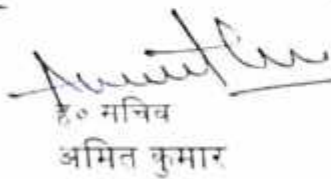 ह० सचिव
अमित कुमार